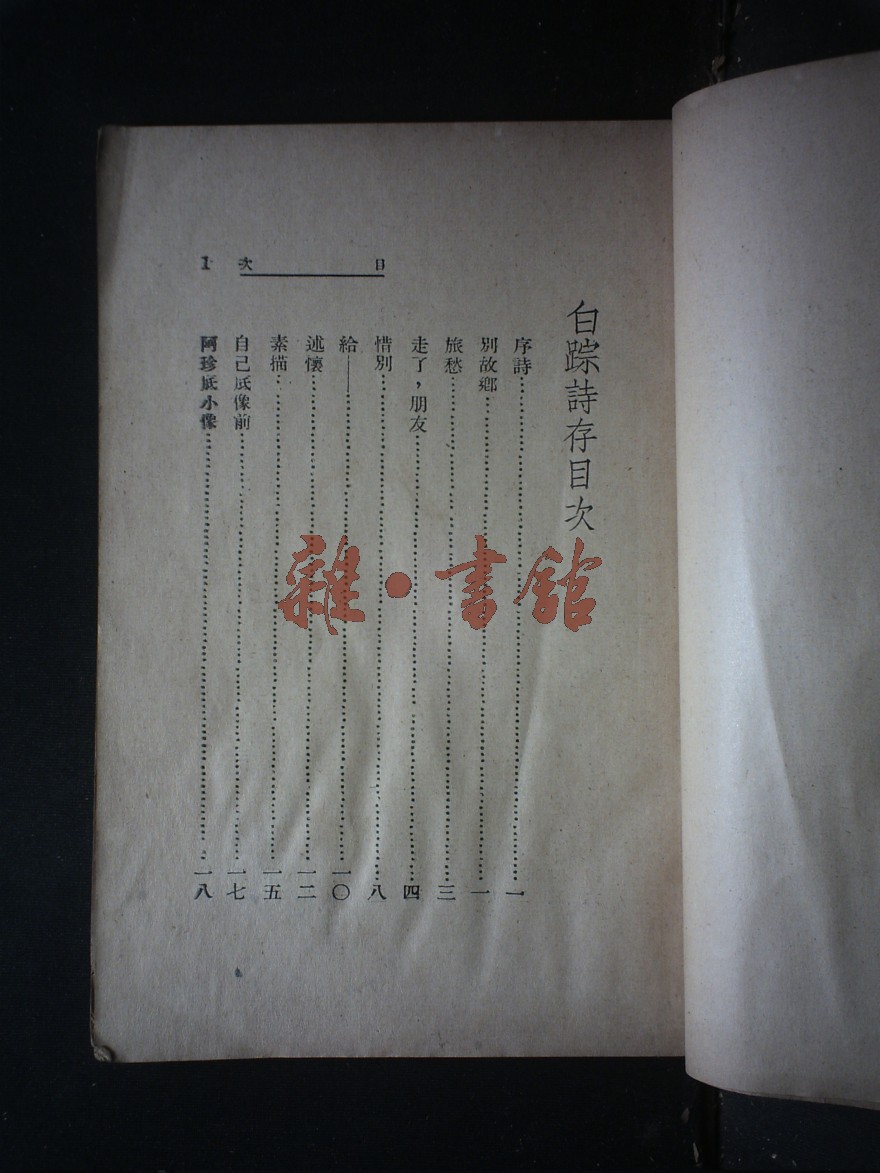 白踪詩存目次
序詩……一
別故鄉……一
旅愁……三
走了，朋友……四
惜別……八
給——……一〇
述懷……一二
素描……一五
自己底像前……一七
阿珍底小像……一八
目次 1
雜·書館